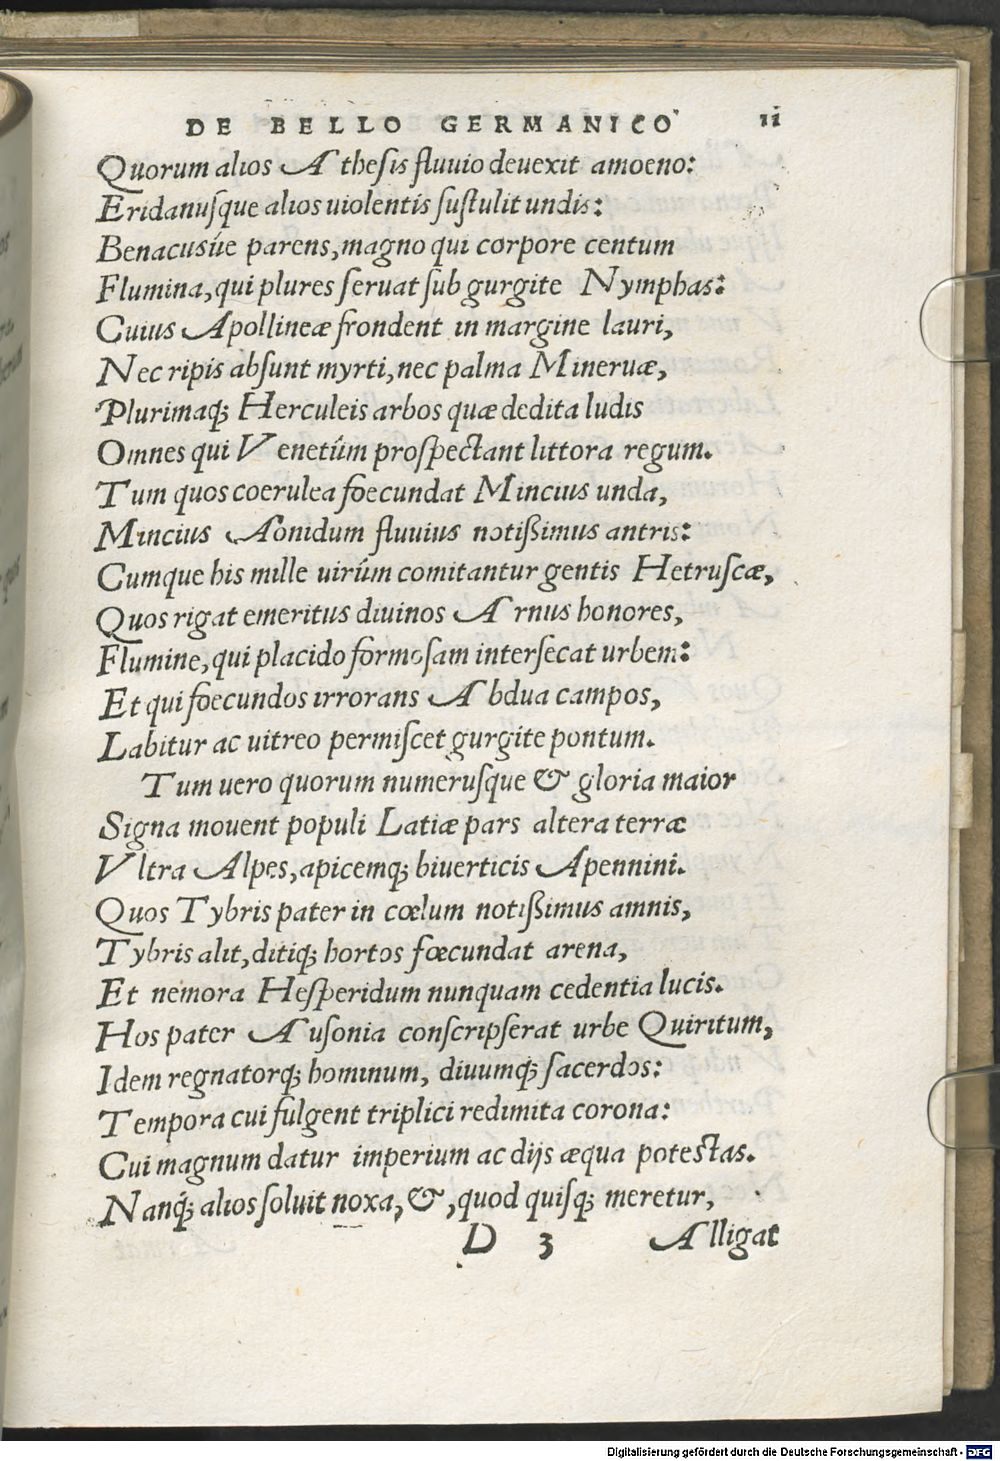 DE BELLO GERMANICO 11
Quorum alios Athesis fluuio deuexit amoeno:
Eridanusque alios uiolentis sustulit undis:
Benacusúe parens, magno qui corpore centum
Flumina, qui plures seruat sub gurgite Nymphas:
Cuius Apollineæ frondent in margine lauri,
Nec ripis absunt myrti, nec palma Mineruæ,
Plurimaq; Herculeis arbos quæ dedita ludis
Omnes qui Venetûm prospectant littora regum.
Tum quos coerulea foecundat Mincius unda,
Mincius Aonidum fluuius notißimus antris:
Cumque his mille uirûm comitantur gentis Hetruscæ,
Quos rigat emeritus diuinos Arnus honores,
Flumine, qui placido formosam intersecat urbem:
Et qui foecundos irrorans Abdua campos,
Labitur ac uitreo permiscet gurgite pontum.
Tum uero quorum numerusque & gloria maior
Signa mouent populi Latiæ pars altera terræ
Vltra Alpes, apicemq; biuerticis Apennini.
Quos Tybris pater in cœlum notißimus amnis,
Tybris alit, ditiq; hortos fœcundat arena,
Et nemora Hesperidum nunquam cedentia lucis.
Hos pater Ausonia conscripserat urbe Quiritum,
Idem regnatorq; hominum, diuumq; sacerdos:
Tempora cui fulgent triplici redimita corona:
Cui magnum datur imperium ac dijs æqua potestas.
Nanq; alios soluit noxa, &, quod quisq; meretur,
D 3 Alligat
Digitalisierung gefördert durch die Deutsche Forschungsgemeinschaft - DFG